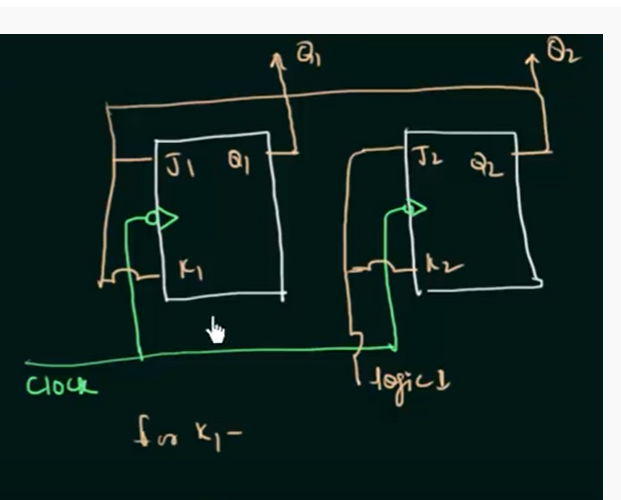 Q1
Q2
J1 Q1
J2 Q2
K1
K2
Clock
logic 1
for K1 -